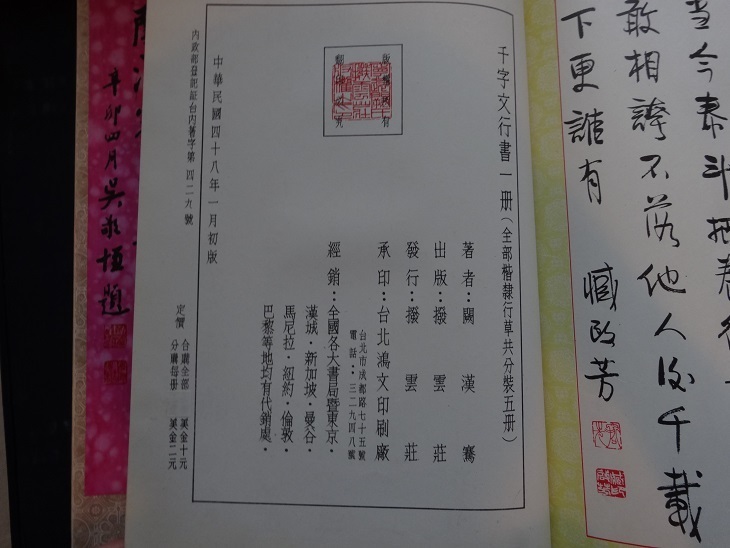 當今泰斗把
敢相誇不落他人後千載
下更誰有 臧啟芳
千字文行書一册(全部楷隸行草共分裝五册)
版權所有
翻印必究
著者:關漢騫
出版:撥雲莊
發行:撥雲莊
承印:台北鴻文印刷廠
台北市成都路七十五號
電話:三二九四八號
經銷:全國各大書局暨東京·
漢城·新加坡·曼谷·
馬尼拉·紐約·倫敦·
巴黎等地均有代銷處·
中華民國四十八年一月初版
內政部登記証台內著字第 四二六 號
定價 合購全部 美金十元
分購每册 美金二元
辛卯四月吳永恒題